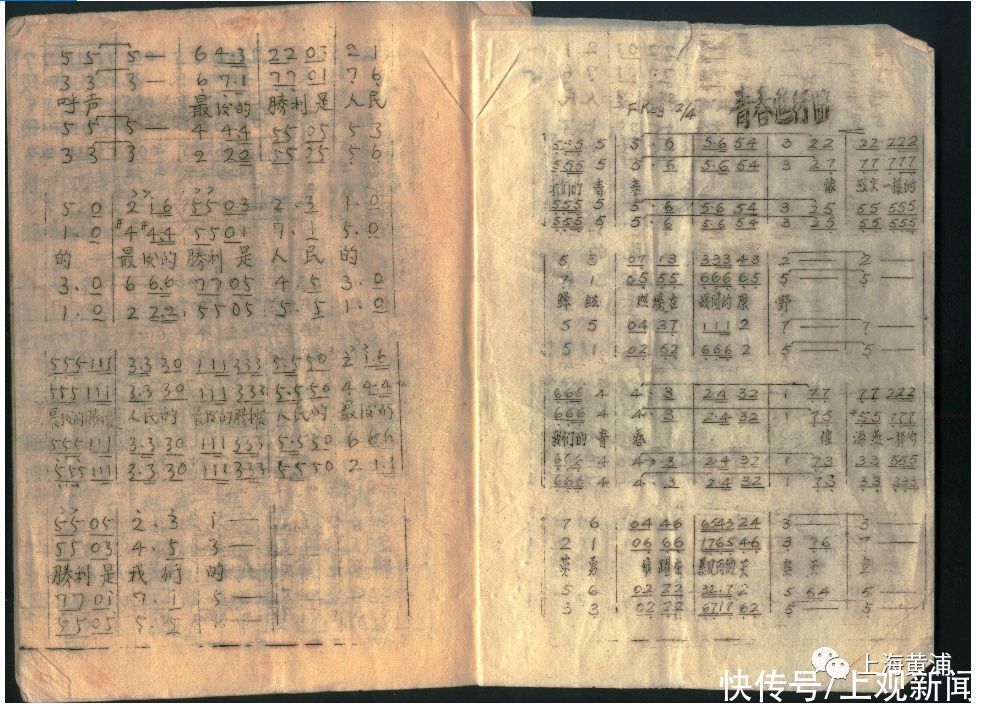 5 5 5 — 6 4 3 2 2 0 3 2 1
3 3 3 — 6 7 · 1 7 7 0 1 7 6
呼声 最后的 勝利是 人民
5 5 5 — 4 4 4 5 5 0 5 5 3
3 3 3 — 2 2 2 5 5 3 5 5 6
5 . 0 2 1 6 5 5 0 3 2 . 3 1 . 0
1 . 0 #4 #4 4 5 5 0 1 7 . 1 5 . 0
的 最后的 勝利 是 人 民 的
3 . 0 6 6 6 7 7 0 5 4 . 5 3 . 0
1 . 0 2 2 2 5 5 0 5 5 . 5 1 . 0
555 111 3.3 30 111 333 5.5 50 2 1 6
555 111 3.3 30 111 333 5.5 50 4 4 4
最后的勝利是 人民的 最后的勝利是 人民的 最后的
555 111 3.3 30 111 333 5.5 50 6 6 6
555 111 3.3 30 111 333 5 5 50 2 1 1
5 5 0 5 2 . 3 1 —
5 5 0 3 4 . 5 3 —
勝利是 我 们 的
7 7 0 1 7 . 1 5 —
5 5 0 5 5 . 5 1 —
F Key 2/4 青春進行曲
555 5 5 . 6 5.6 54 3 22 22 222
555 5 5 6 5.6 54 3 27 77 777
我们的 青 春 像 烈火一樣的
555 5 5 . 6 5.6 54 3 25 55 555
555 5 5 . 6 5.6 54 3 25 55 555
5 3 07 13 333 43 2 — 2 —
7 1 65 55 666 65 5 — 5 —
鮮 紅 燃燒在 战鬥的 原 野
5 5 04 37 111 2 7 — 7 —
5 1 02 52 666 2 5 — 5 —
666 4 4 . 3 2.4 32 1 77 77 222
666 4 4 . 3 2.4 32 1 75 #55 777
我们的 青 春 像 海燕一样的
666 4 4 . 3 2.4 32 1 73 33 555
666 4 4 . 3 24 32 1 73 33 333
7 6 04 46 6543 24 3 — 3 —
2 1 06 66 1765 46 3 76 7 —
英 勇 飛躍在
5 6 02 22 2 5 64 5 —
3 3 02 22 6717 62 5 — 5 —
上海黄浦
快传号/上观新闻